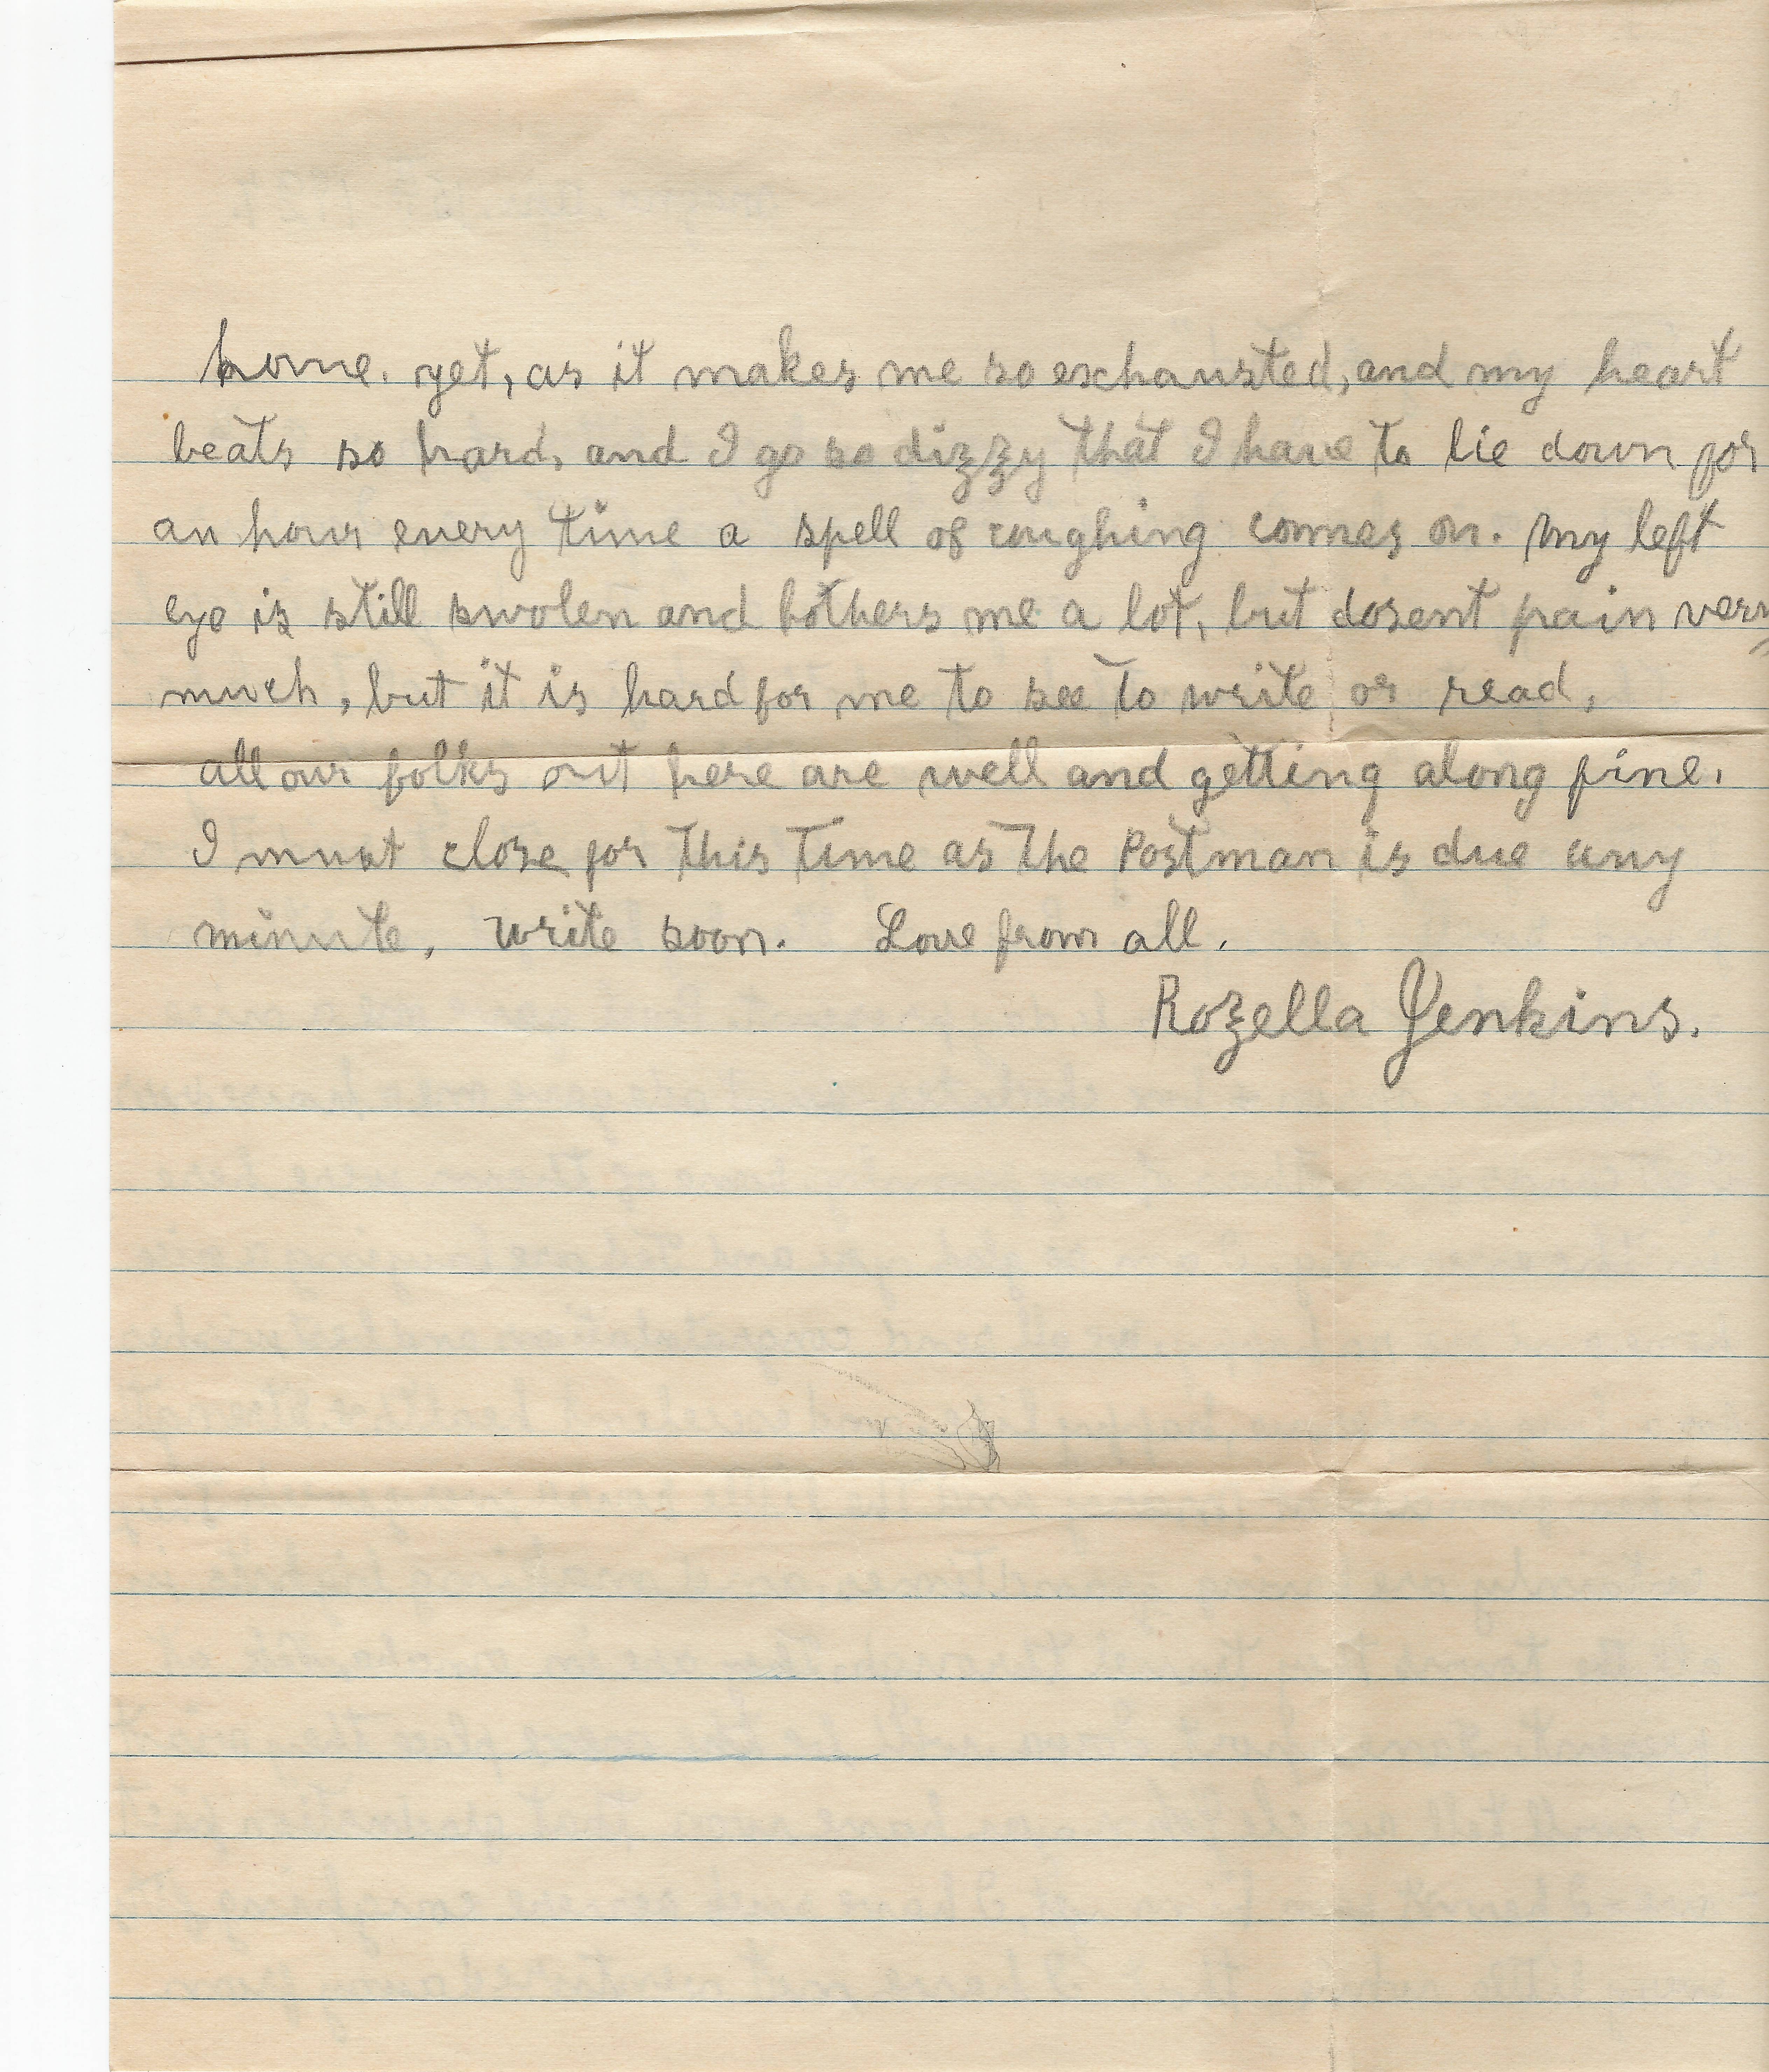 home. yet, as it makes me so exchausted, and my heart
beats so hard, and I go so dizzy that I have to lie down for
an hour every time a spell of coughing comes on. My left
eye is still swolen and bothers me a lot, but dosent pain very
much, but it is hard for me to see to write or read,
all our folks out here are well and getting along fine.
I must close for this time as the Postman is due any
minute, write soon. Love from all.
Rozella Jenkins.